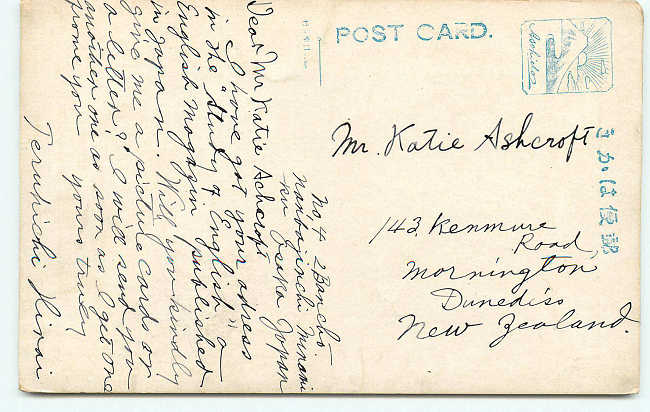 POST CARD.
Mr. Katie Ashcroft
143, Kenmure
Road,
Mornington
Dunediss
New Zealand.
No. 4 2 Bancho.
Nanbashinchi Minami
Ku Osaka Japan
Dear Mr Katie Ashcroft
I have got your adress
in the "Study of English" a
English Magazin published
in Japan. Will you kindly
give me a picture cards or
a letter? I will send you
another one as soon as I get one
frome you yours truly
Teruhichi Hirai